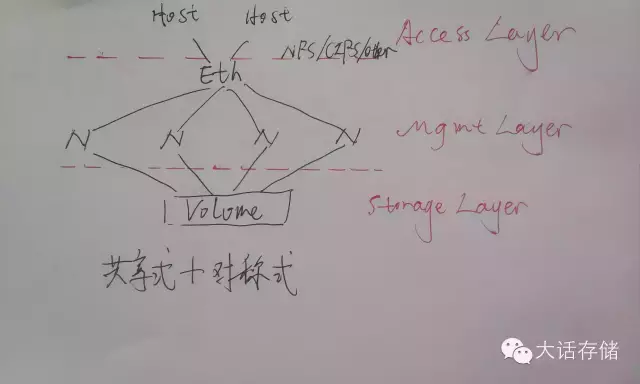 Host Host
NFS/CIFS/other Access Layer
Eth
N N N N Mgmt Layer
Volume Storage Layer
共享式+对称式
大话存储